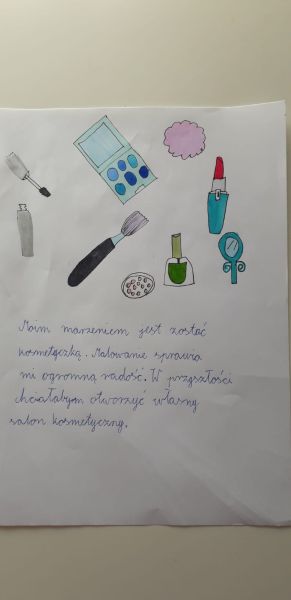 Moim marzeniem jest zostać
kosmetyczką. Malowanie sprawia
mi ogromną radość. W przyszłości
chciałabym otworzyć własny
salon kosmetyczny.